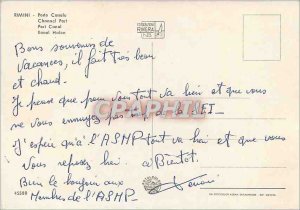 RIMINI - Porto Canale
Channel Port
Port Canal
Kanal Hafen
Bons souvenirs de
vacances, il fait très beau
et chaud.
Je pense que pour vous tout va bien et que vous
ne vous ennuyez pas
J'espère qu'à l'ASMP tout va bien et que vous
vous reposez bien. a Bientot.
Bien le bonjour aux
Membres de l'ASMP-
45500